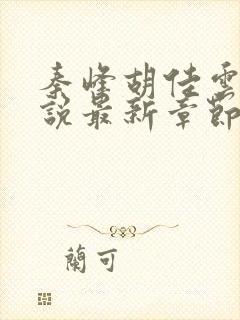 秦峰胡佳雲
說最新章節
蘭可